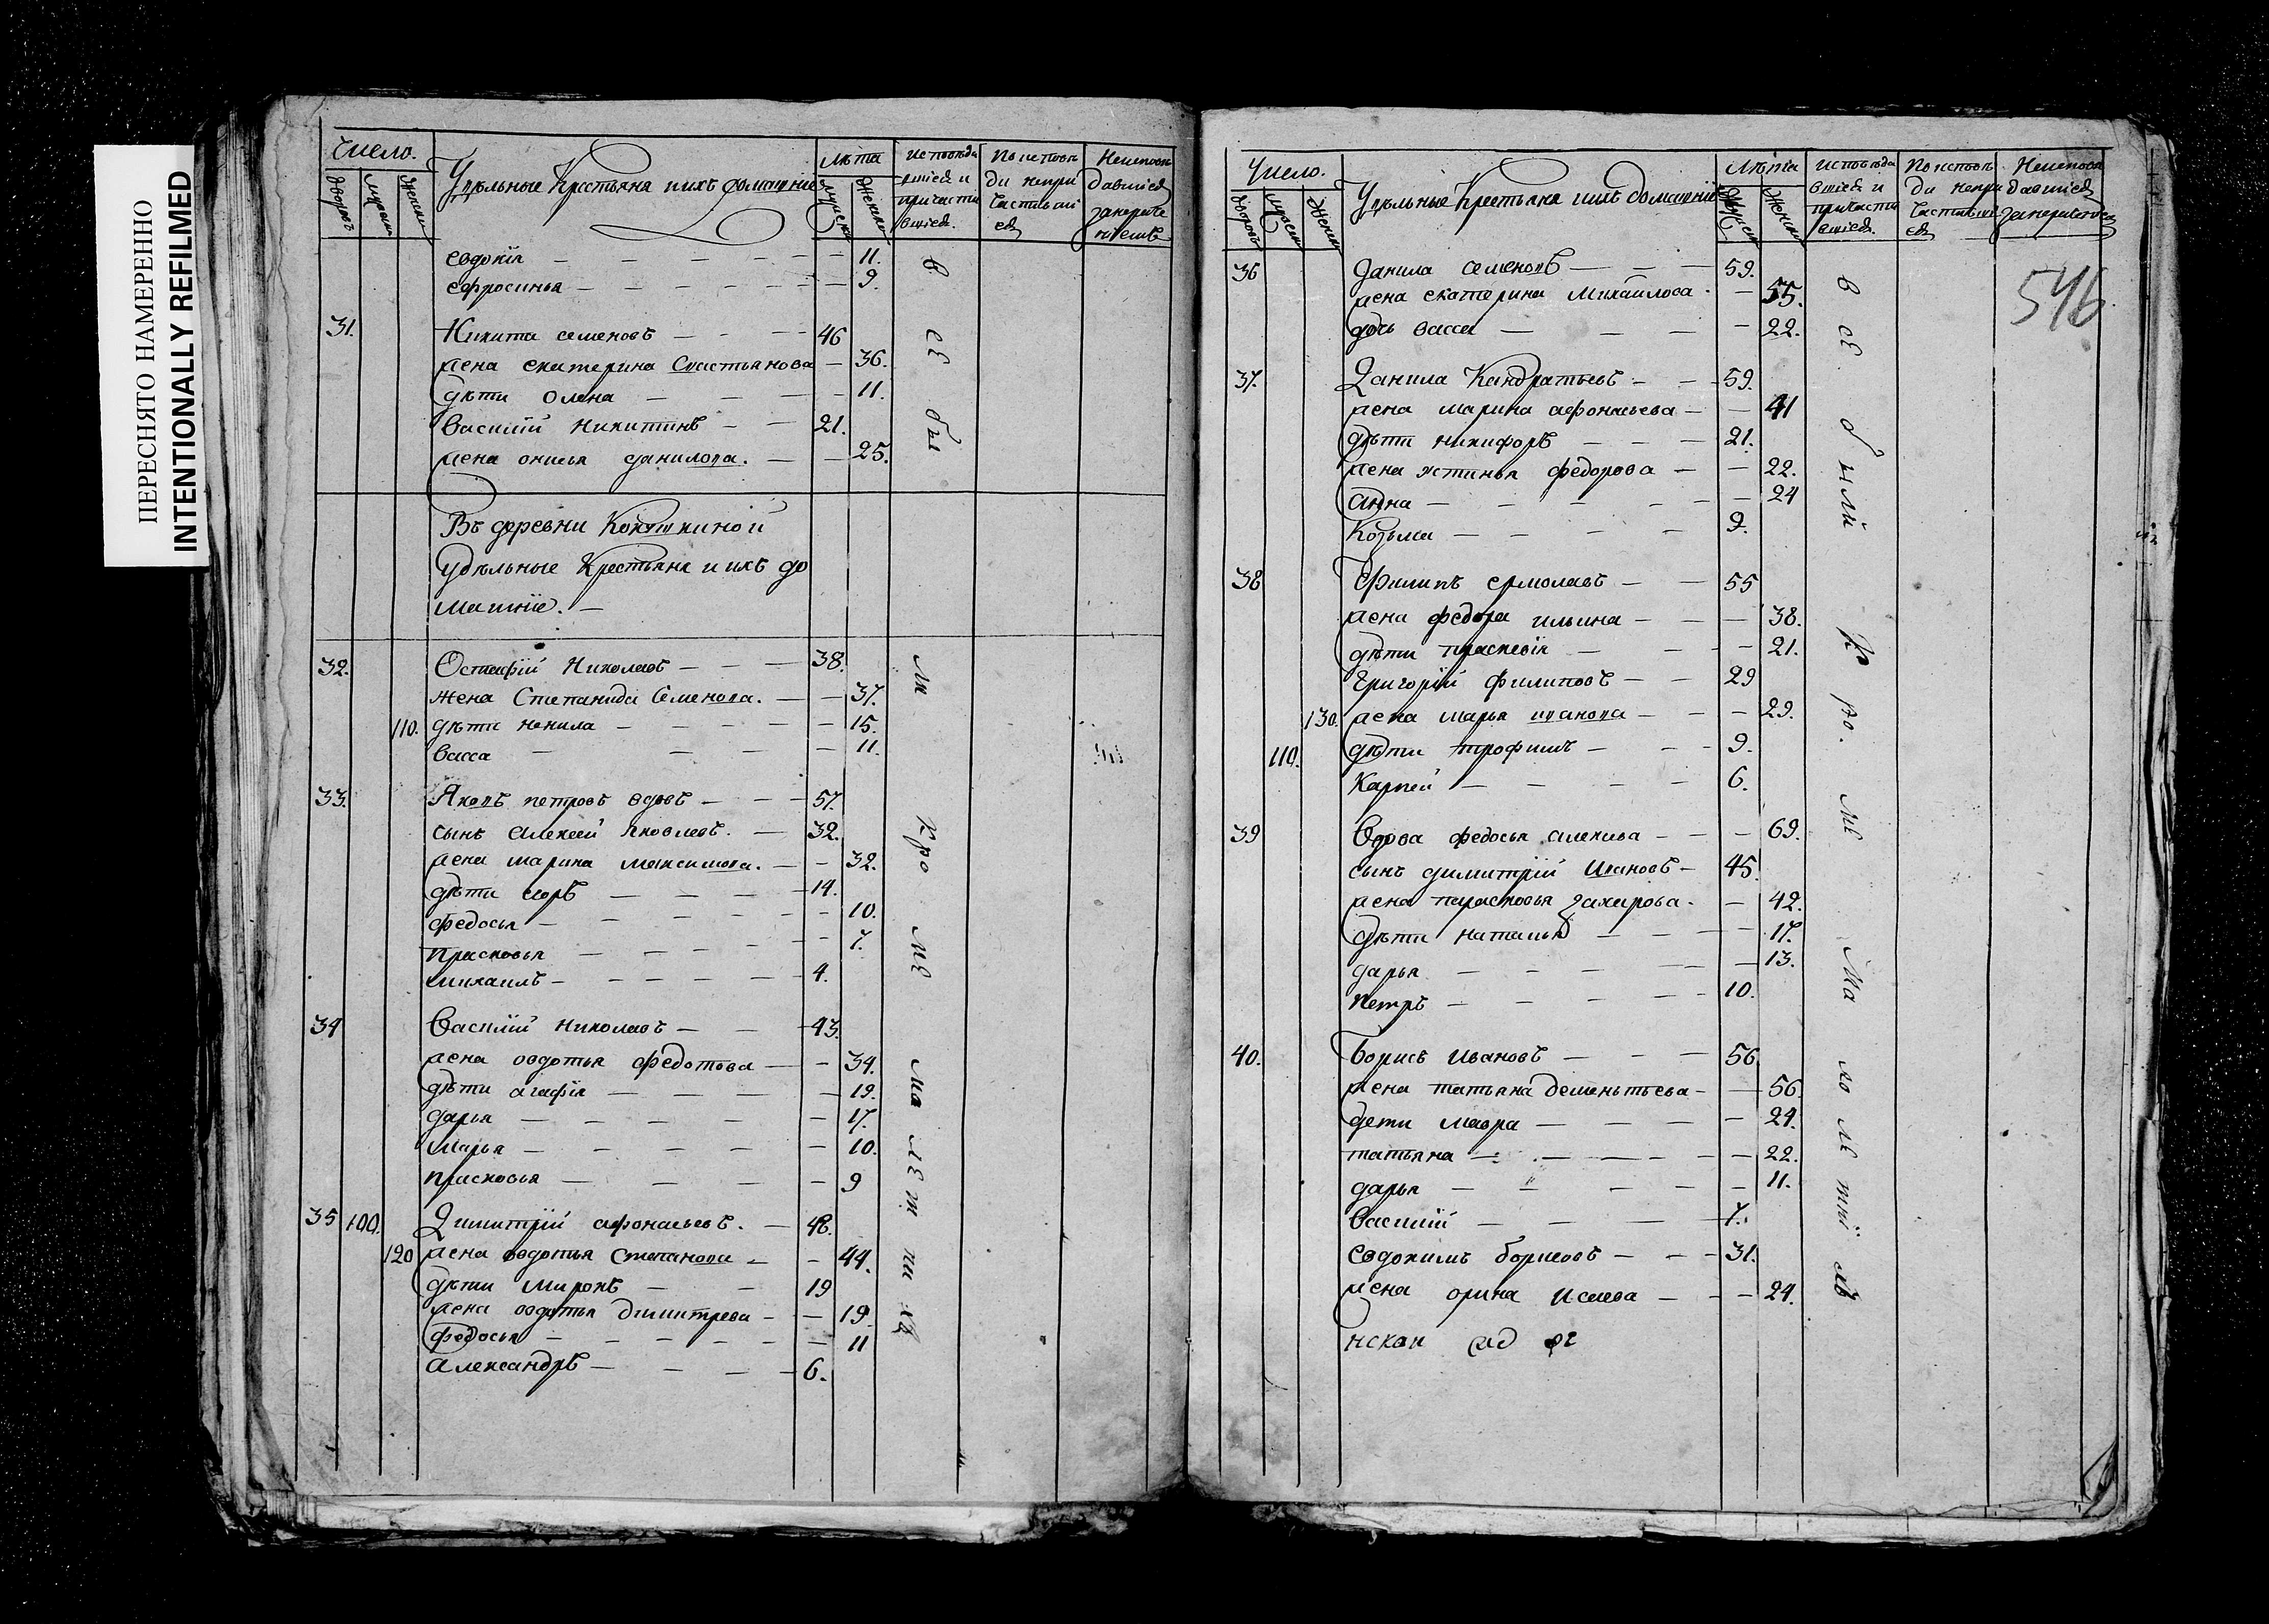 ПЕРЕСНЯТО НАМЕРЕННО
INTENTIONALLY REFILMED
Число.
дворовъ
мужеск
женск
Удѣльные Крестьяна и ихъ домашніе
Лѣта
мужеск
женск
исповѣда
вшіеся и
причасти
вшіеся.
По исповѣ
ди непри
частивші
ся
Неисповѣ
давшіеся
евдокія — 11.
ефросинья — 9.
31. Никита семеновъ — 46
жена екатерина Севастьянова — 36.
дѣти Олена — 11.
василій никитинъ — 21.
жена онисья данилова. — 25.
Въ деревни
удѣльные Крестьяна и ихъ до
машніе. —
32. Остафій Николаевъ — 38.
жена Степанида Семенова. — 37.
110. дѣти ненила — 15.
васса — 11.
33. Яковъ петровъ вдовъ — 57.
сынъ алексей яковлевъ. — 32.
жена марина максимова. — 32.
дѣти — 14.
федосья — 10.
прасковья — 7.
михаилъ — 4.
34 Василій николаевъ — 43.
жена овдотья федотова — 34.
дѣти агафія — 19.
дарья — 17.
марья — 10.
прасковья — 9
35 100. Димитрій афонасьевъ. — 48.
120 жена овдотья Степанова — 44.
дѣти Миронъ — 19
жена овдотья димитрева — 19.
федосья — 11
александръ — 6.
всѣ были кромѣ малѣтнихъ
Число.
дворовъ
мужеск
женск
Удѣльные Крестьяна и ихъ домашніе
Лѣта
мужеск
женск
исповѣда
вшіеся и
причасти
вшіеся.
По исповѣ
ди непри
частивші
ся
Неиспове
давшіеся
546
36 данила семеновъ — 59.
жена екатерина Михайлова. — 55.
дочь васса — 22.
37. Данила Кандратьевъ — 59.
жена марина афонасьева — 41
дѣти никифоръ — 21.
жена устинья федорова — 22.
анна — 24
Козьма — 9.
38 Филипъ ермолаевъ — 55
жена федора ильина — 38.
дѣти праскевія — 21.
Григорій филиповъ — 29
130. жена марья иванова — 29.
110. дѣти трофимъ — 9.
Карпей — 6.
39 Вдова федосья — 69.
сынъ димитрій Ивановъ — 45.
жена парасковья Захарова. — 42.
дѣти наталья — 17.
дарья — 13.
петръ — 10.
40. Борисъ Ивановъ — 56
жена татьяна дементьева — 56.
дети мавра — 24.
татьяна — 22.
дарья — 11.
василій — 7.
евдокимъ борисовъ — 31.
жена орина Исаева — 24.
всѣ были кромѣ малолѣтнихъ